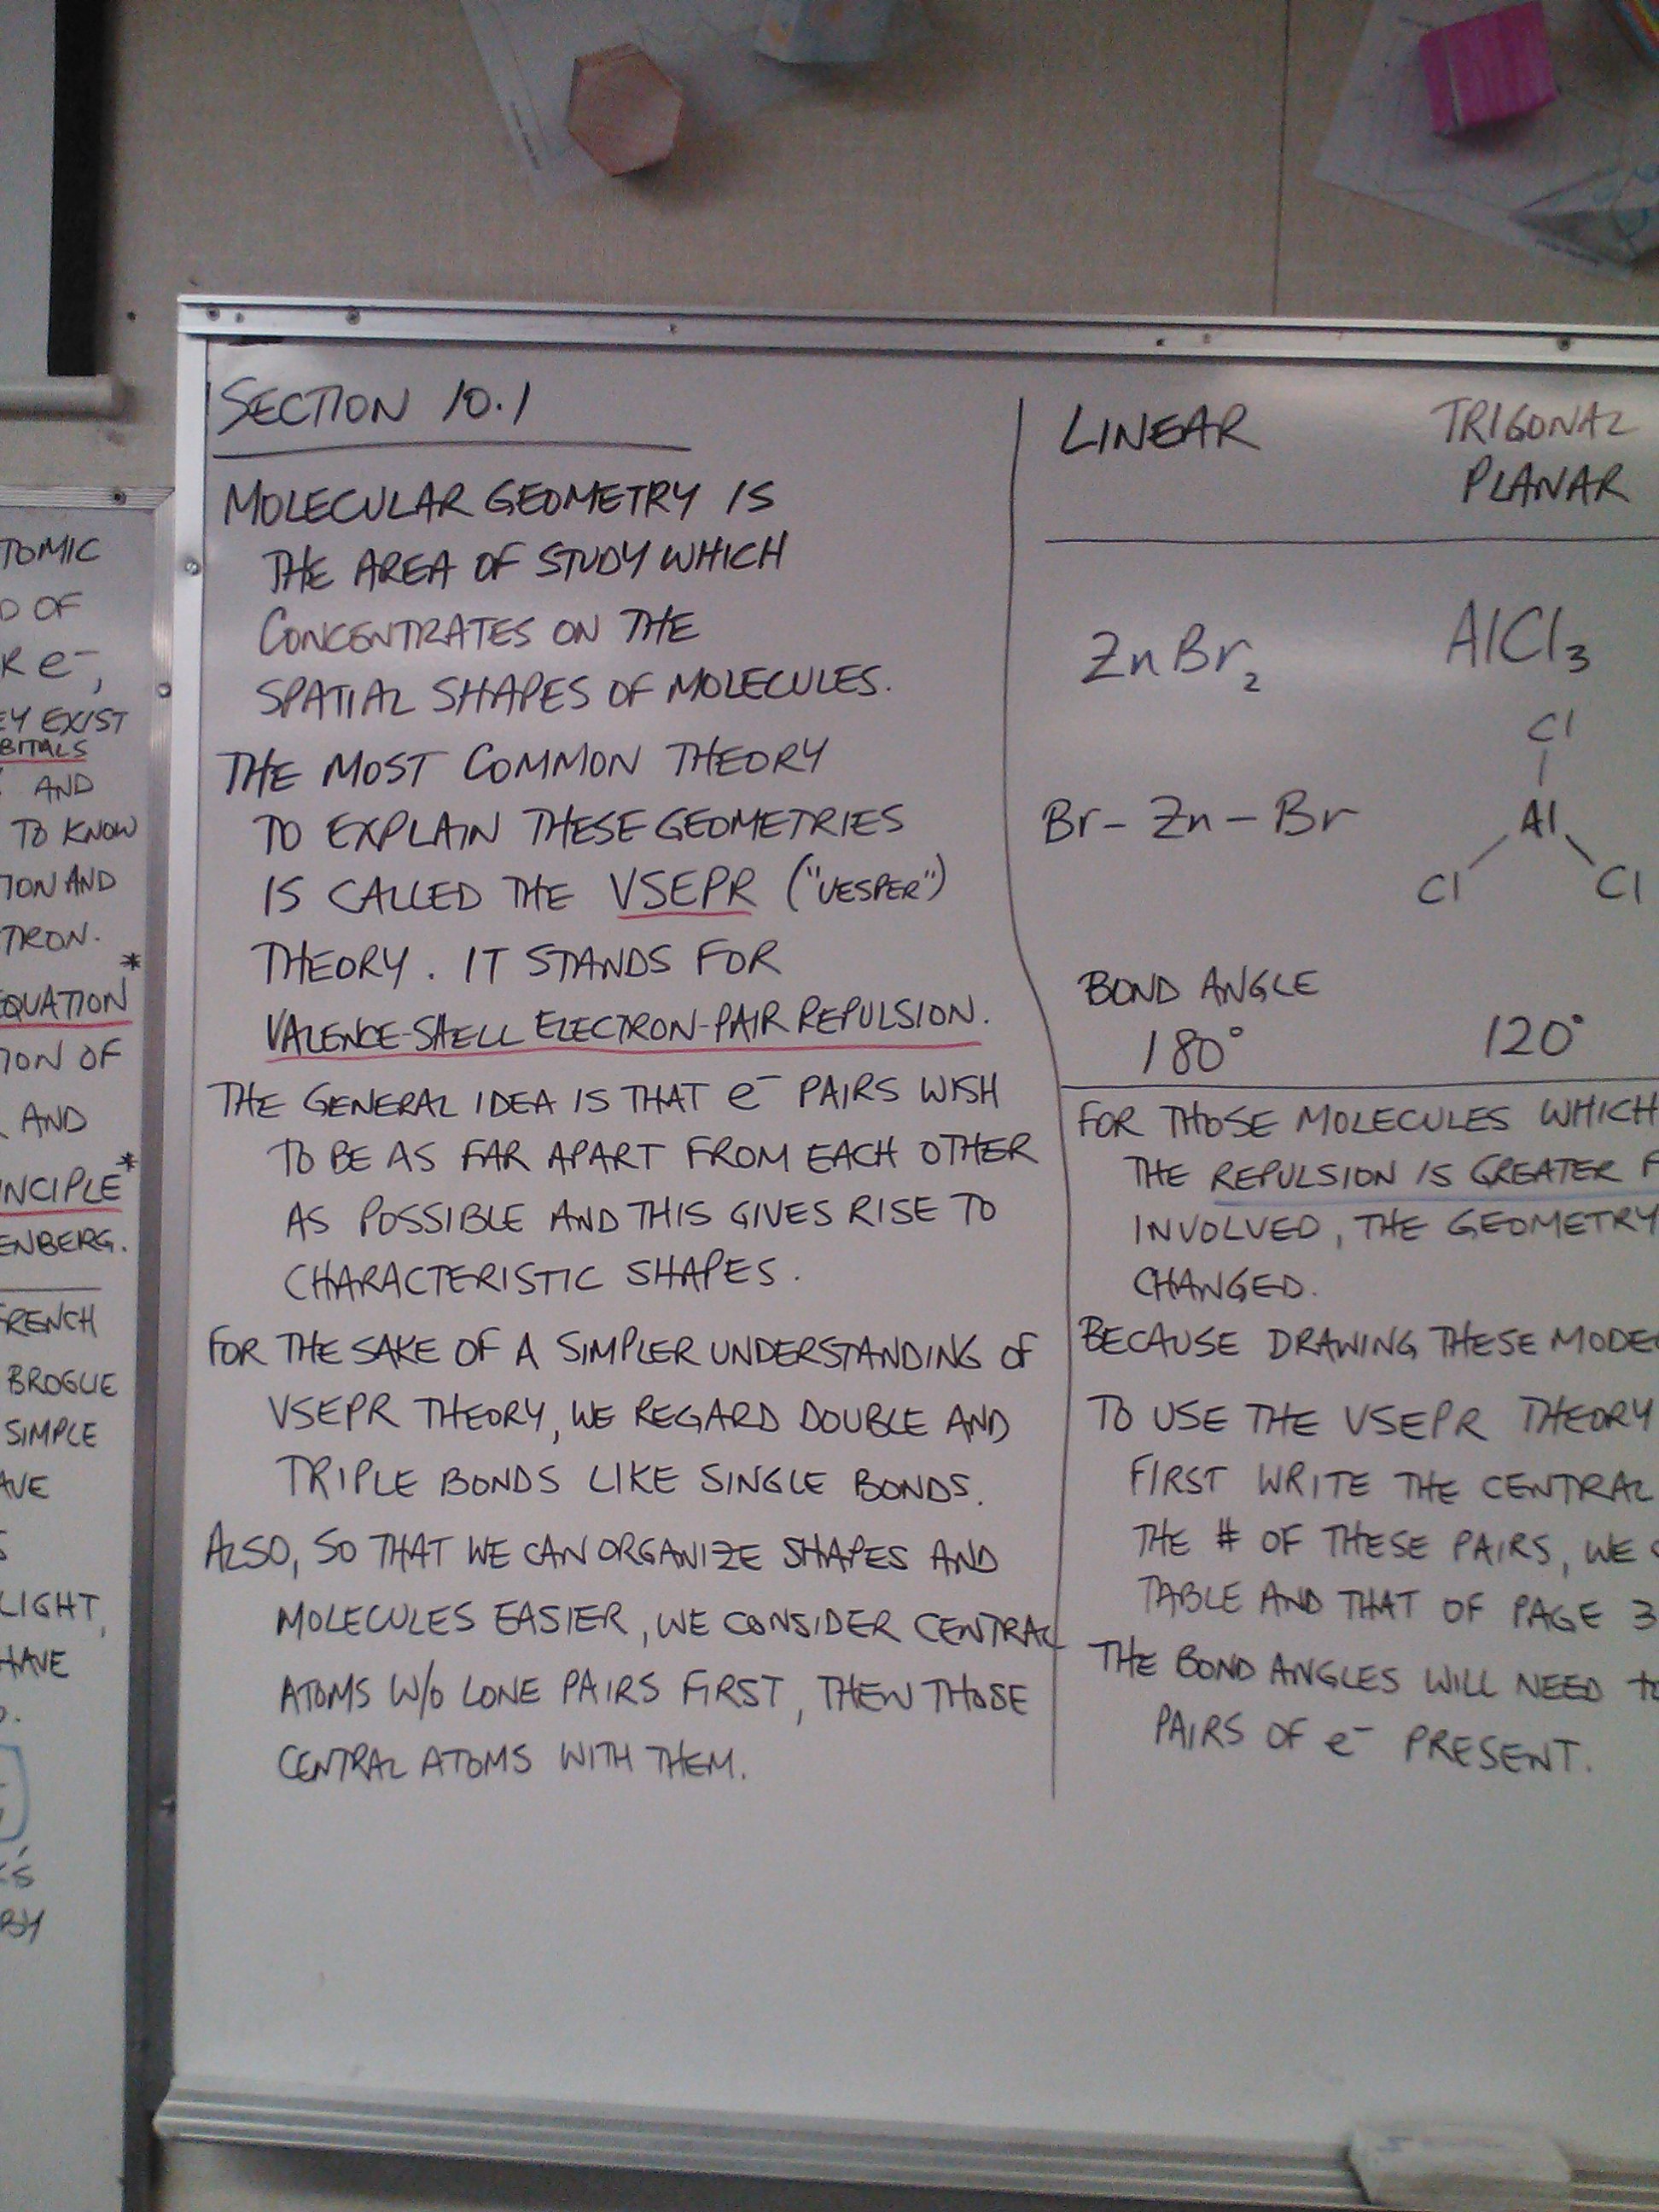 TOMIC
D OF
R e⁻,
EY EXIST
BITALS
AND
TO KNOW
TION AND
TRON.
*
EQUATION
ION OF
AND
*
INCIPLE
ENBERG.
FRENCH
BROGLIE
SIMPLE
AVE
S
LIGHT,
HAVE
SECTION 10.1
MOLECULAR GEOMETRY IS
THE AREA OF STUDY WHICH
CONCENTRATES ON THE
SPATIAL SHAPES OF MOLECULES.
THE MOST COMMON THEORY
TO EXPLAIN THESE GEOMETRIES
IS CALLED THE VSEPR ("VESPER")
THEORY. IT STANDS FOR
VALENCE-SHELL ELECTRON-PAIR REPULSION.
THE GENERAL IDEA IS THAT e⁻ PAIRS WISH
TO BE AS FAR APART FROM EACH OTHER
AS POSSIBLE AND THIS GIVES RISE TO
CHARACTERISTIC SHAPES.
FOR THE SAKE OF A SIMPLER UNDERSTANDING OF
VSEPR THEORY, WE REGARD DOUBLE AND
TRIPLE BONDS LIKE SINGLE BONDS.
ALSO, SO THAT WE CAN ORGANIZE SHAPES AND
MOLECULES EASIER, WE CONSIDER CENTRAL
ATOMS W/O LONE PAIRS FIRST, THEN THOSE
CENTRAL ATOMS WITH THEM.
LINEAR TRIGONAL
PLANAR
ZnBr₂ AlCl₃
Cl
Br - Zn - Br Al
Cl Cl
BOND ANGLE
180° 120°
FOR THOSE MOLECULES WHICH
THE REPULSION IS GREATER F
INVOLVED, THE GEOMETRY
CHANGED.
BECAUSE DRAWING THESE MODE
TO USE THE VSEPR THEORY
FIRST WRITE THE CENTRAL
THE # OF THESE PAIRS, WE
TABLE AND THAT OF PAGE 3
THE BOND ANGLES WILL NEED to
PAIRS OF e⁻ PRESENT.